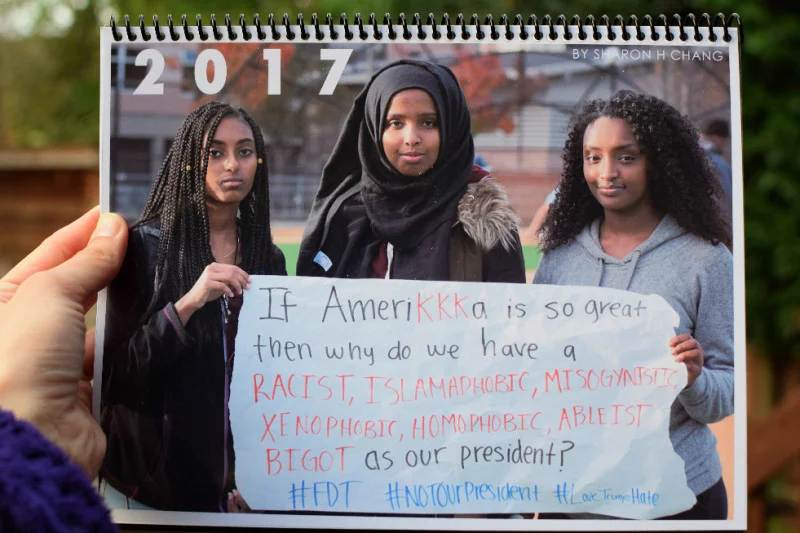 2017
BY SHARON H CHANG
If AmeriKKKa is so great
then why do we have a
RACIST, ISLAMAPHOBIC, MISOGYNISTIC
XENOPHOBIC, HOMOPHOBIC, ABLEIST
BIGOT as our president?
#FDT #NOTOurPresident #LoveTrumpsHate